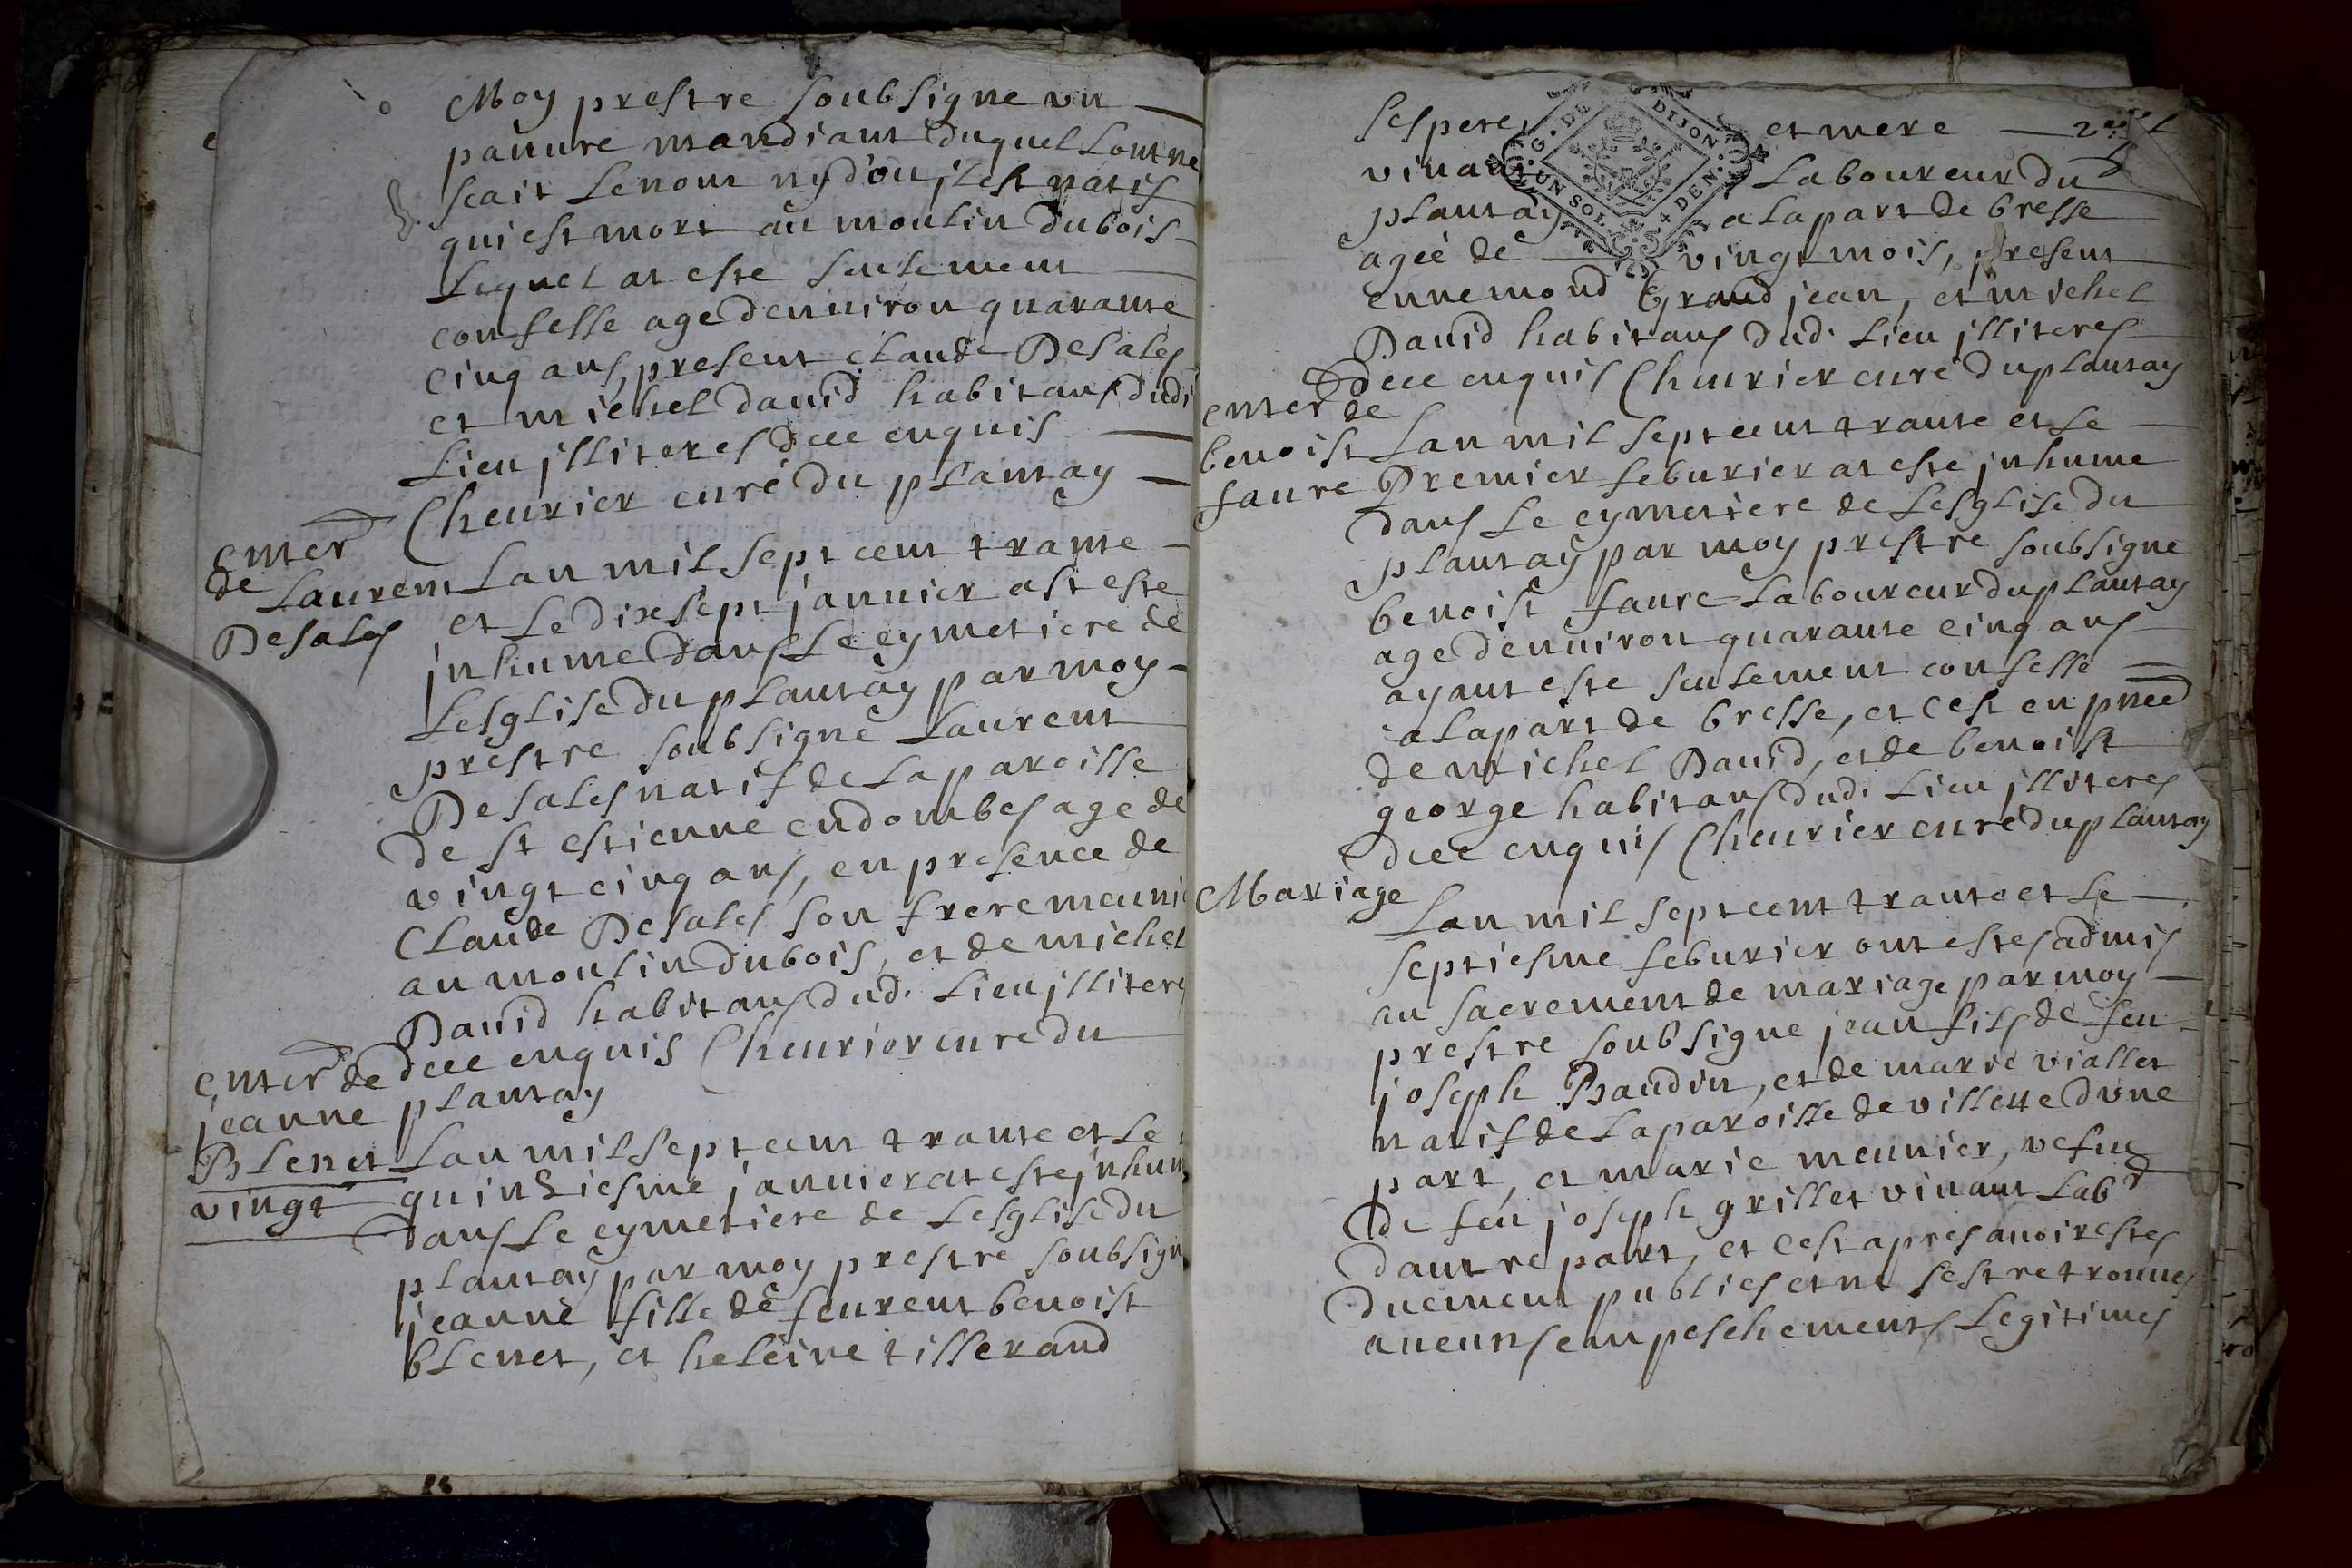 Moy prestre soubsigne vn
pauure mandiant duquel Lont ne
scait Le nom ny dou jl est natif
qui est mort au moulin du bois
Lequel at este seulement
confesse age denuiron quarante
cinq ans, present claude Desales
et michel dauid habitans dudi
Lieu jlliteres dece enquis
Cheurier curé du plantay
enter
de Laurent
Desales
Lan mil sept cent trante
et Le dix sept januier ast este
jnhume dans Le cymetiere de
Lesglise du plantay par moy
prestre soubsigne Laurent
Desales natif de La paroisse
de st estienne en dombes age de
vingt cinq ans, en presence de
Claude Desales son frere meuni
au moulin du bois, et de michel
Dauid habitans dud. Lieu jllitere
dece enquis Cheurier cure du
plantay
enter de
jeanne
Blenet
vingt
Lan mil sept cent trante et Le
quinziesme januier at este jnhum
dans Le cymetiere de Lesglise du
plantay par moy prestre soubsign
jeanne fille de feu rent benoist
blenet, et heleine tillerand
ses pere, et mere
G. DE DIJON
UN SOL 4 DEN.
viuant Laboureur du
plantay a La part de bresse
ageé de vingt mois, present
ennemond Grand jean, et michel
Dauid habitans dud. Lieu jlliteres
dece enquis Cheurier curé du plantay
enter de
benoist
faure
Lan mil sept cent trante et Le
Premier feburier at este jnhume
dans Le cymetiere de Lesglise du
plantay par moy prestre soubsigne
benoist faure Laboureur du plantay
age denuiron quarante cinq ans
ayant este seulement confessé
a La part de bresse, et cest en pnce
de michel Dauid, et de benoist
george habitans dud. Lieu jlliteres
dece enquis Cheurier curé du plantay
Mariage
Lan mil sept cent trante et Le
septiesme feburier ont estes admis
au sacrement de mariage par moy
prestre soubsigne jean fils de feu
joseph Baudin, et de marie viallet
natif de La paroisse de villette dvne
part, et marie meunier, vefue
de feu joseph grillet viuant Labr
dautre part, et cest apres auoir estes
duement publies et ne sest retrouues
aucuns empeschements Legitimes